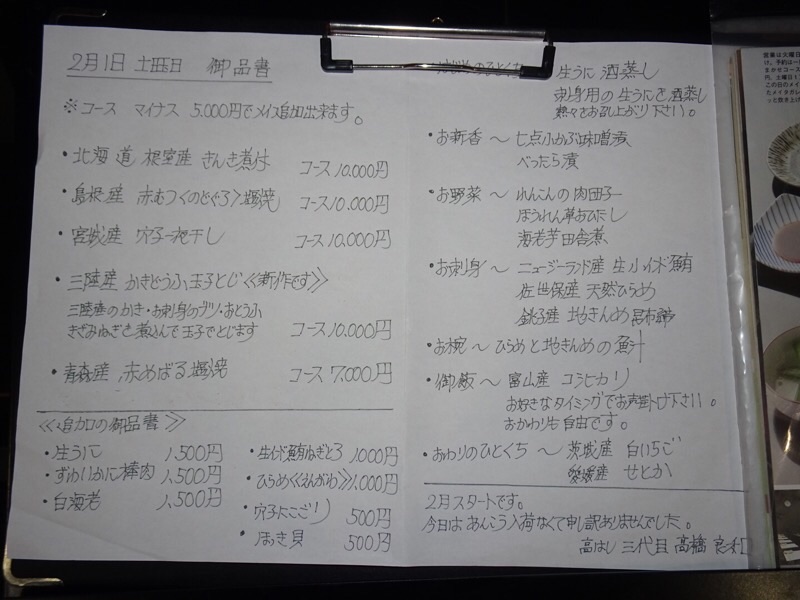 2月1日 土曜日 御品書
※コース マイナス 5.000円でメイン追加出来ます。
・北海道 根室産 きんき煮付 コース10.000円
・島根産 赤むつ<のどぐろ>塩焼 コース10.000円
・宮城産 穴子一夜干し コース10.000円
・三陸産 かきどうふ玉子とじ≪新作です≫
三陸産のかき・お刺身のブツ・おとうふ
きざみねぎを煮込んで玉子でとじます コース10.000円
・青森産 赤めばる塩焼 コース7.000円
≪追加の御品書≫
・生うに 1,500円
・ずわいかに棒肉 1,500円
・白海老 1,500円
・生インド鮪ねぎとろ 1000円
・ひらめ≪えんがわ≫1,000円
・穴子にこごり 500円
・ほっき貝 500円
はじめのひとくち 生うに 酒蒸し
お刺身用の生うにを酒蒸し
熱々をお召し上がり下さい。
・お新香 〜 七点小かぶ味噌漬
べったら漬
・お野菜 〜 れんこんの肉団子
ほうれん草おひたし
海老芋田舎煮
・お刺身 〜 ニュージーランド産 生インド鮪
佐世保産 天然ひらめ
銚子産 地きんめ昆布〆
・お椀 〜 ひらめと地きんめの魚汁
・御飯 〜 富山産 コシヒカリ
お好きなタイミングでお声掛け下さい。
おかわりも自由です。
・おわりのひとくち 〜 茨城産 白いちご
愛媛産 せとか
2月スタートです。
今日は あんこう入荷なくて申し訳ありませんでした。
高はし 三代目 高橋